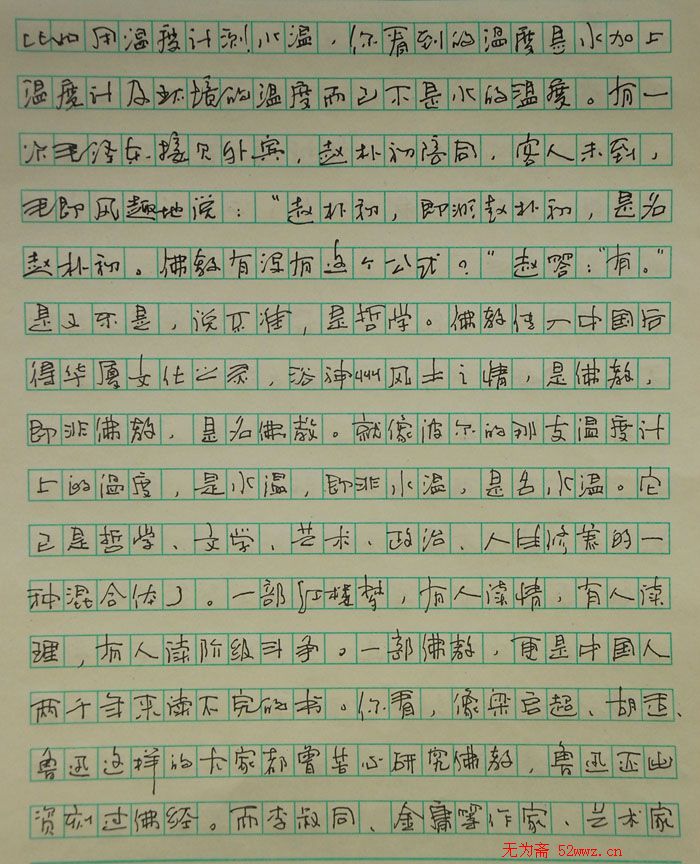 用温度计测水温，你看到的温度是水加上
温度计及环境的温度而已不是水的温度。有一
次毛泽东接见外宾，赵朴初陪同，客人未到，
毛即风趣地说："赵朴初，即非赵朴初，是名
赵朴初。佛教有没有这个公式？"赵答："有。"
是又不是，说不准，是哲学。佛教传入中国后
得华厦文化之灵，浴神州风土之情，是佛教，
即非佛教，是名佛教。就像波尔的那支温度计
上的温度，是水温，即非水温，是名水温。它
已是哲学、文学、艺术、政治、人生修养的一
种混合体了。一部红楼梦，有人读情，有人读
理，有人读阶级斗争。一部佛教，更是中国人
两千年来读不完的书。你看，像梁启超、胡适、
鲁迅这样的大家都曾苦心研究佛教，鲁迅还出
资刻过佛经。而李叔同、金庸等作家、艺术家
无为斋 52wwz.cn